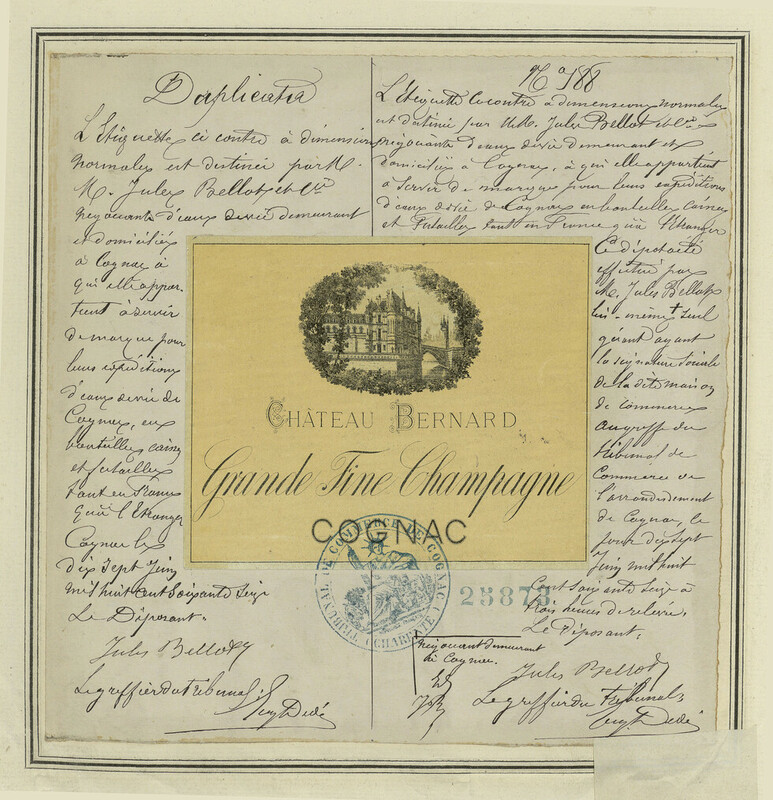 Duplicata
L'Etiquette ci contre à dimensions
normales est destinée par M.
M. Jules Bellot & Cie
négociants d'eaux de vie demeurant
et domiciliés
à Cognac à
qui elle appar-
tient à servir
de marque pour
leurs expéditions
d'eaux de vie de
Cognac, en
bouteilles caisses
et futailles
tant en France
qu'à l'Etranger
Cognac le
dix sept Juin
mil huit cent soixante seize
Le Déposant,
Jules Bellot
Le greffier du Tribunal
No 188
L'Etiquette ci contre à dimensions normales
est destinée par M.M. Jules Bellot & Cie
négociants d'eaux de vie demeurant et
domiciliés à Cognac, à qui elle appartient
à servir de marque pour leurs expéditions
d'eaux de vie de Cognac en bouteilles caisses
et futailles tant en France qu'à l'Etranger
Ce dépôt a été
effectué par
M. Jules Bellot
lui-même + seul
gérant ayant
la signature sociale
de la dite maison
de Commerce
au greffe du
tribunal de
Commerce de
l'arrondissement
de Cognac, le
jour dix sept
Juin mil huit
cent soixante seize à
trois heures de relevée.
Le Déposant,
+ négociant demeurant
à Cognac.
Jules Bellot
Le greffier du Tribunal
CHÂTEAU BERNARD
Grande Fine Champagne
COGNAC
TRIBUNAL DE COMMERCE DE COGNAC (CHARENTE)
25873